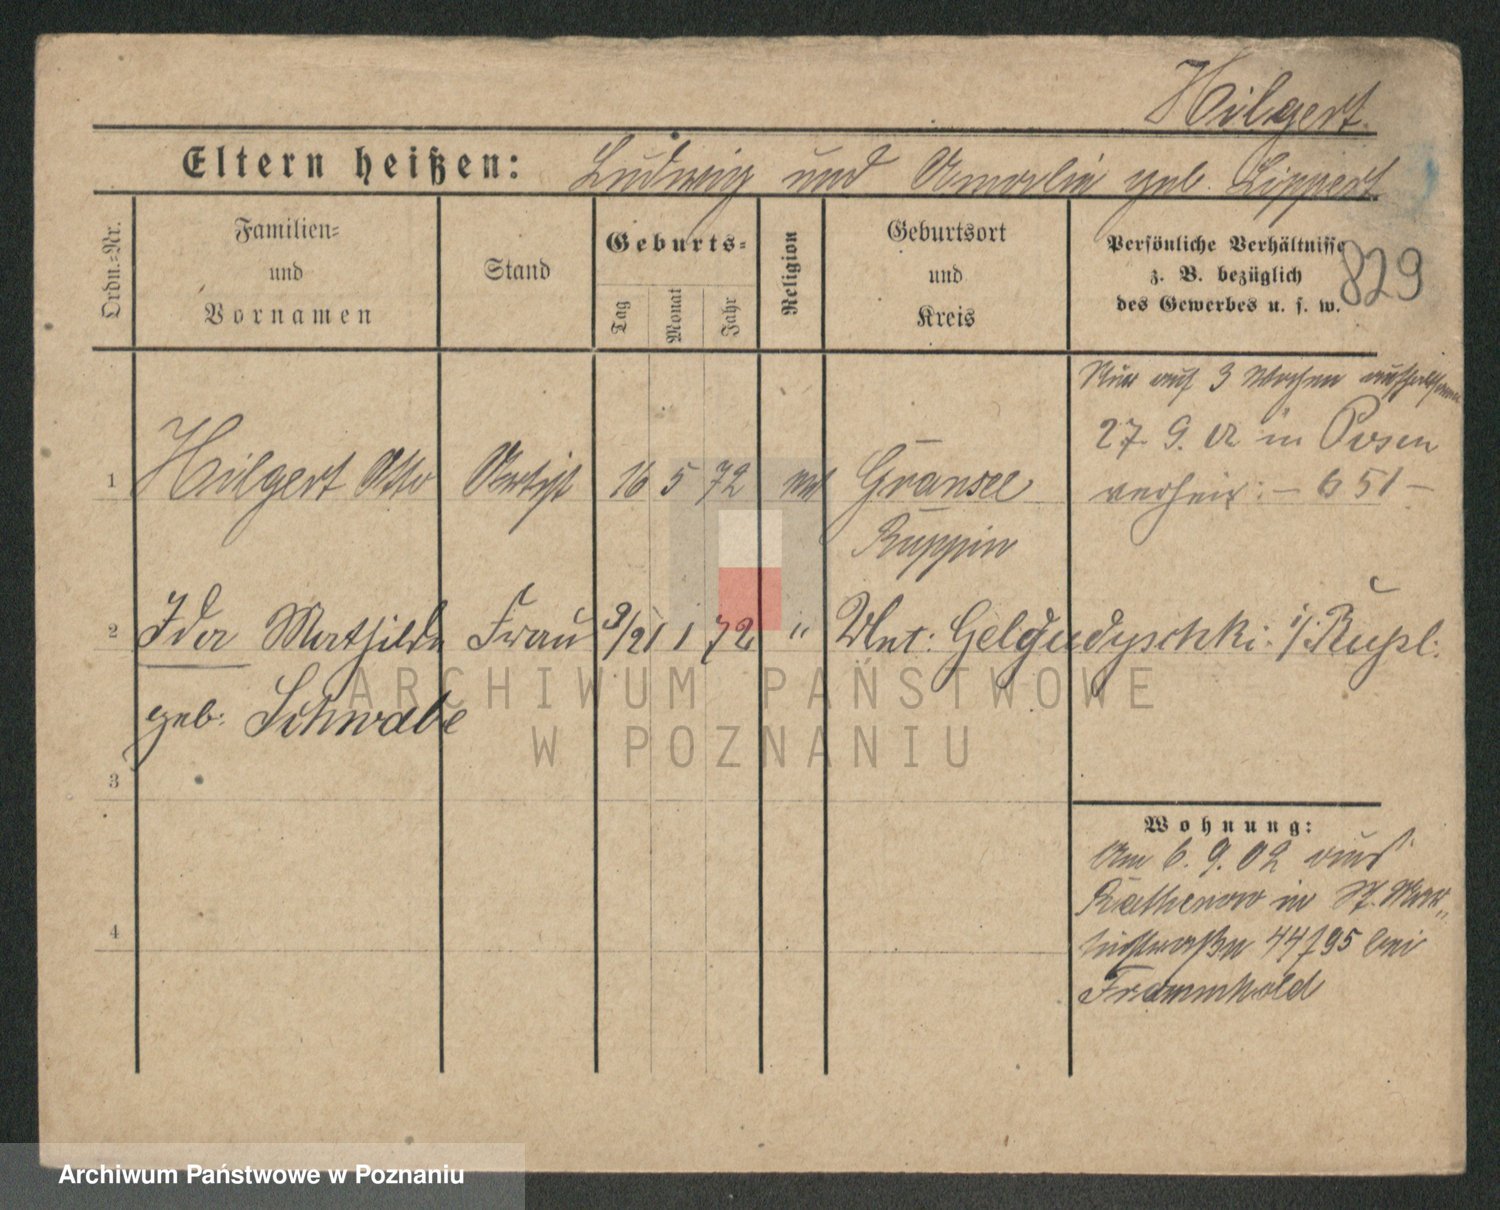 Hilgert.
Eltern heißen: Ludwig und Amalie geb. Lippert
Ordn.-Nr.
Familien-
und
Vornamen
Stand
Geburts-
Tag
Monat
Jahr
Religion
Geburtsort
und
Kreis
Persönliche Verhältnisse
z. B. bezüglich
des Gewerbes u. s. w.
829
Nur auf 3 Wochen
27. 9. 02 in Posen
verheir: – 651 –
1 Hilgert Otto Artist 16 5 72 Gransee
Ruppin
2 Ida Mathilde Frau 9/21 1 72 " Gelgudyschki i/Rußl.
geb: Schwabe
3
4
Wohnung:
Am 6. 9. 02 aus
Rathenow in St. Mar-
tinstraße 44/95 bei
Frommhold
ARCHIWUM PAŃSTWOWE
W POZNANIU
Archiwum Państwowe w Poznaniu